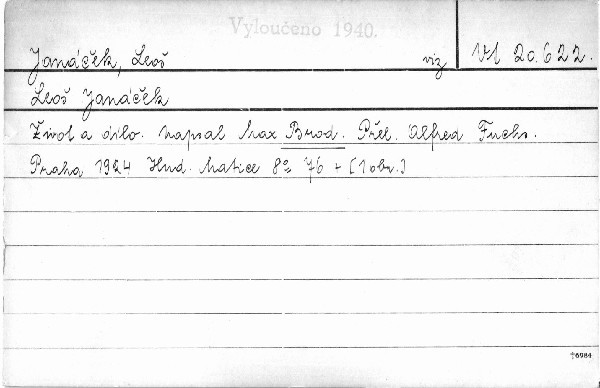 Vyloučeno 1940.
Janáček, Leoš viz Vl 20.622.
Leoš Janáček
Život a dílo. Napsal Max Brod. Přel. Alfred Fuchs.
Praha 1924 Hud. Matice 8° 76 + [1 obr.]
†6984